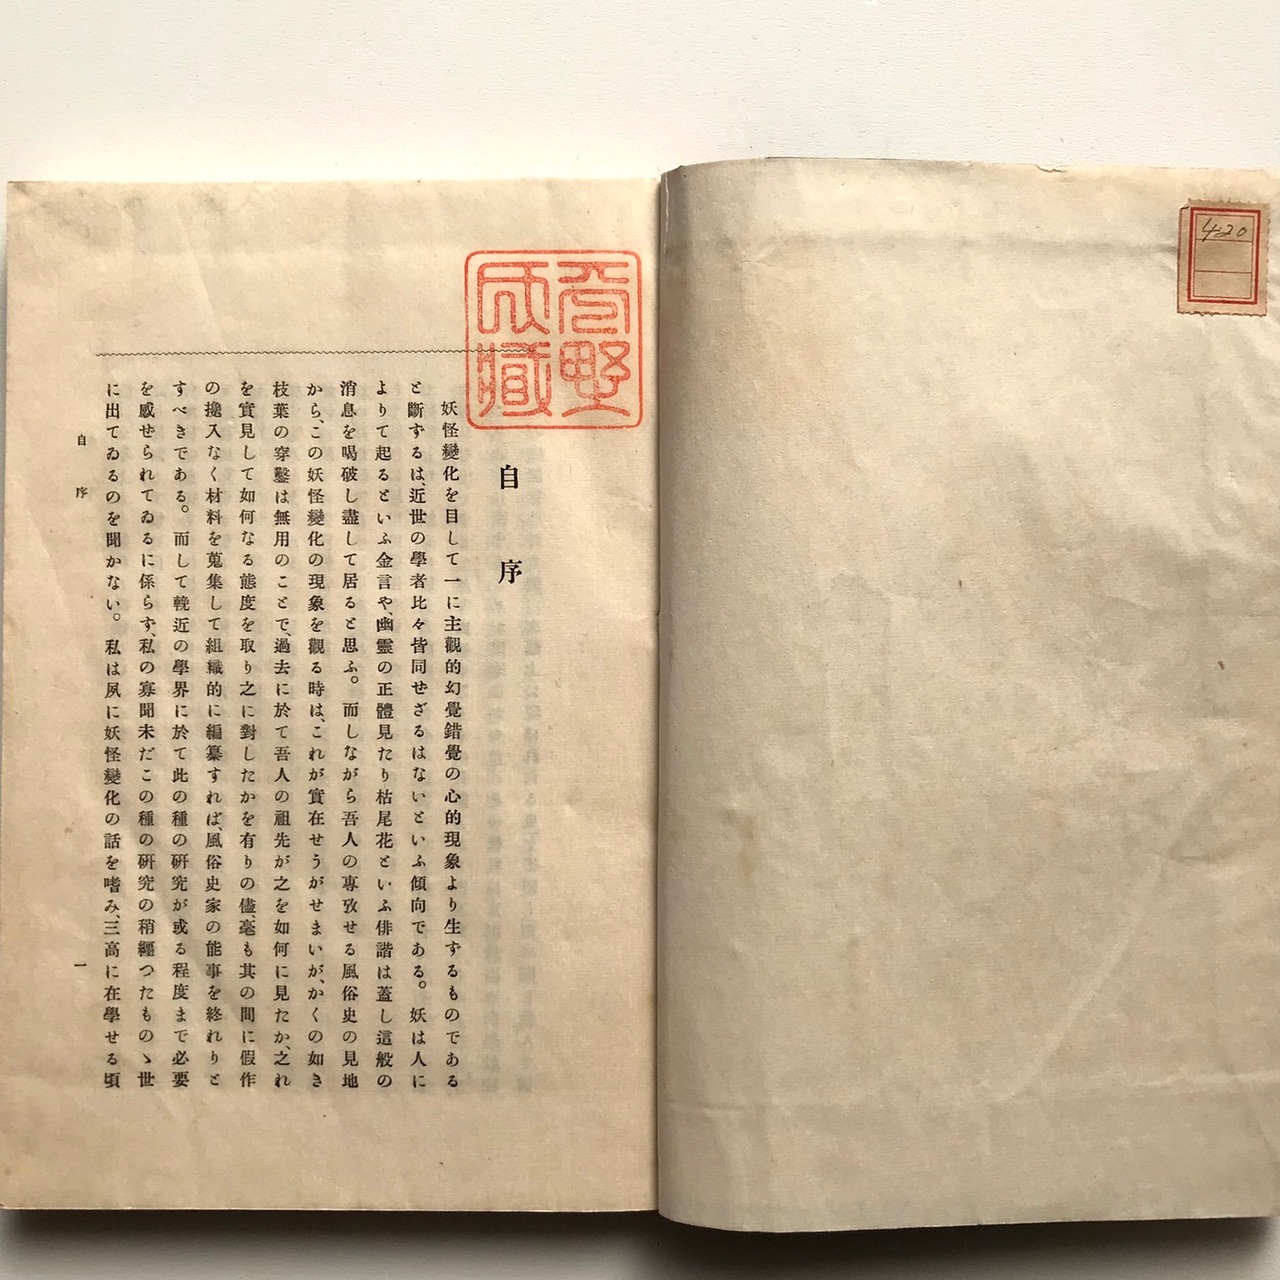 420
自序
妖怪變化を目して一に主觀的幻覺錯覺の心的現象より生ずるものである
と斷ずるは、近世の學者比々皆同せざるはないといふ傾向である。妖は人に
よりて起るといふ金言や、幽靈の正體見たり枯尾花といふ俳諧は蓋し這般の
消息を喝破し盡して居ると思ふ。而しながら吾人の專攻せる風俗史の見地
から、この妖怪變化の現象を觀る時は、これが實在せうがせまいが、かくの如き
枝葉の穿鑿は無用のことで、過去に於て吾人の祖先が之を如何に見たか、之れ
を實見して如何なる態度を取り之に對したかを有りの儘、毫も其の間に假作
の攙入なく材料を蒐集して組織的に編纂すれば、風俗史家の能事を終れりと
すべきである。而して輓近の學界に於て此の種の硏究が或る程度まで必要
を感ぜられてゐるに係らず、私の寡聞未だこの種の硏究の稍纒つたものゝ世
に出てゐるのを聞かない。私は夙に妖怪變化の話を嗜み、三高に在學せる頃
自序
一